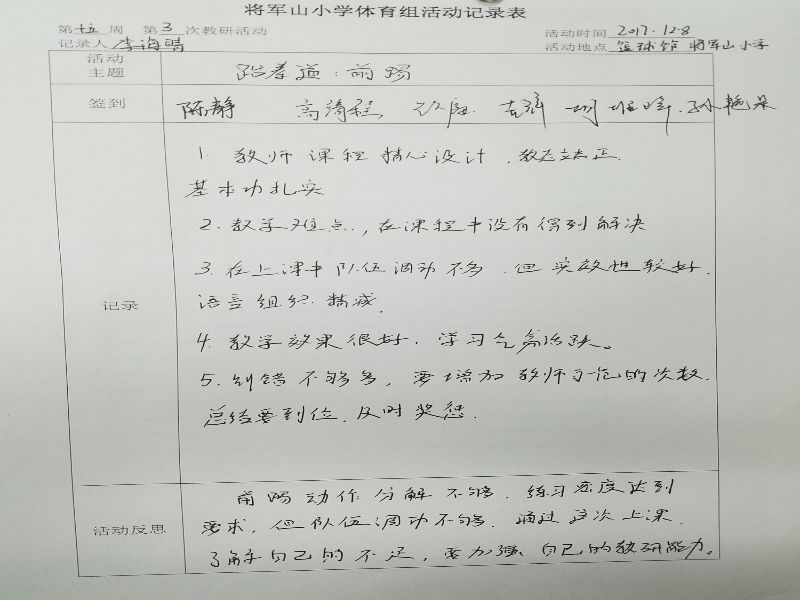 将军山小学体育组活动记录表
第十五周 第3次教研活动 活动时间 2017.12.8
记录人 李海晴 活动地点 篮球馆 将军山小学
活动
主题
跆拳道:前踢
签到 陈静 高绮程
1. 教师课程精心设计,教态端正.
基本功扎实
2. 教学难点,在课程中没有得到解决
3. 在上课中队伍调动不多,但实效性较好.
语言组织精减.
记录
4. 教学效果很好.学习气氛活跃。
5. 纠错不够多,要增加教师示范的次数.
总结要到位.及时奖惩.
前踢动作分解不够.练习密度达到
活动反思
要求,但队伍调动不够.通过这次上课.
了解自己的不足,要加强自己的教研能力。